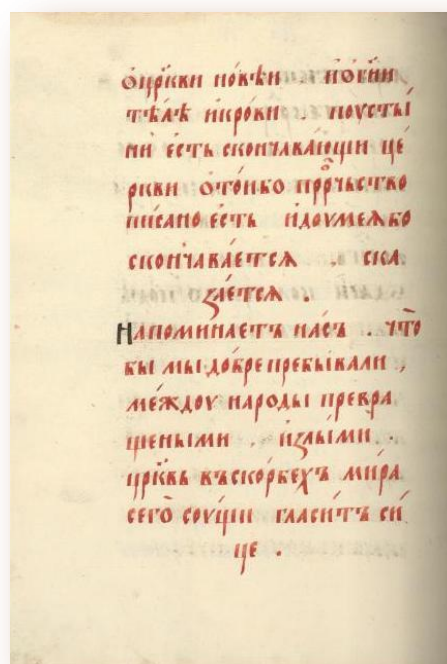 ѡцр҃кви новѣи . иѡбни
тѣлѣ икрови . поусты́
ни е́сть сконъчава́ющи це́
ркви ѡтои́бо прⷪ҇рчьство
писано е́сть идоумеѧ бо
скончава́етсѧ . ска
за́етсѧ .
Напомина́етъ на́съ . что̀
бы мы до́брепребыва́ли ,
ме́ждоу наро́ды превра
щеными . излы́ми .
цр҃квь въско́рбехъ ми́ра
сего̀ соущи гласи́тъ си́
це .